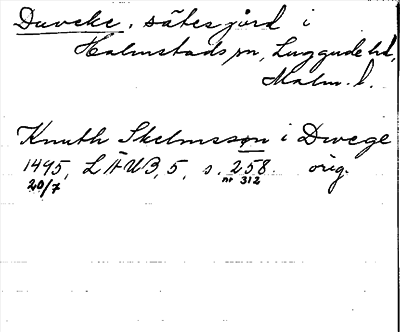 Duveke, sätesgård i
Halmstads sn, Luggude hd,
Malm. l.
Knuth Skelmssøn i Dwege
1495, LÄUB, 5, s. 258. orig.
20/7 nr 312